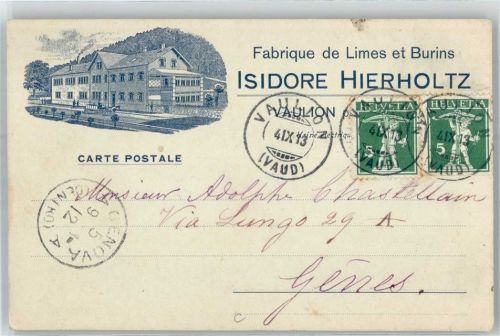 Fabrique de Limes et Burins
ISIDORE HIERHOLTZ
VAULION
CARTE POSTALE
VAULION
4 IX 13
(VAUD)
HELVETIA
5
HELVETIA
5
4 IX 13
(VAUD)
GENOVA
9 5
12
Monsieur Adolphe Chastellain
Via Lungo 29 A
Gênes.